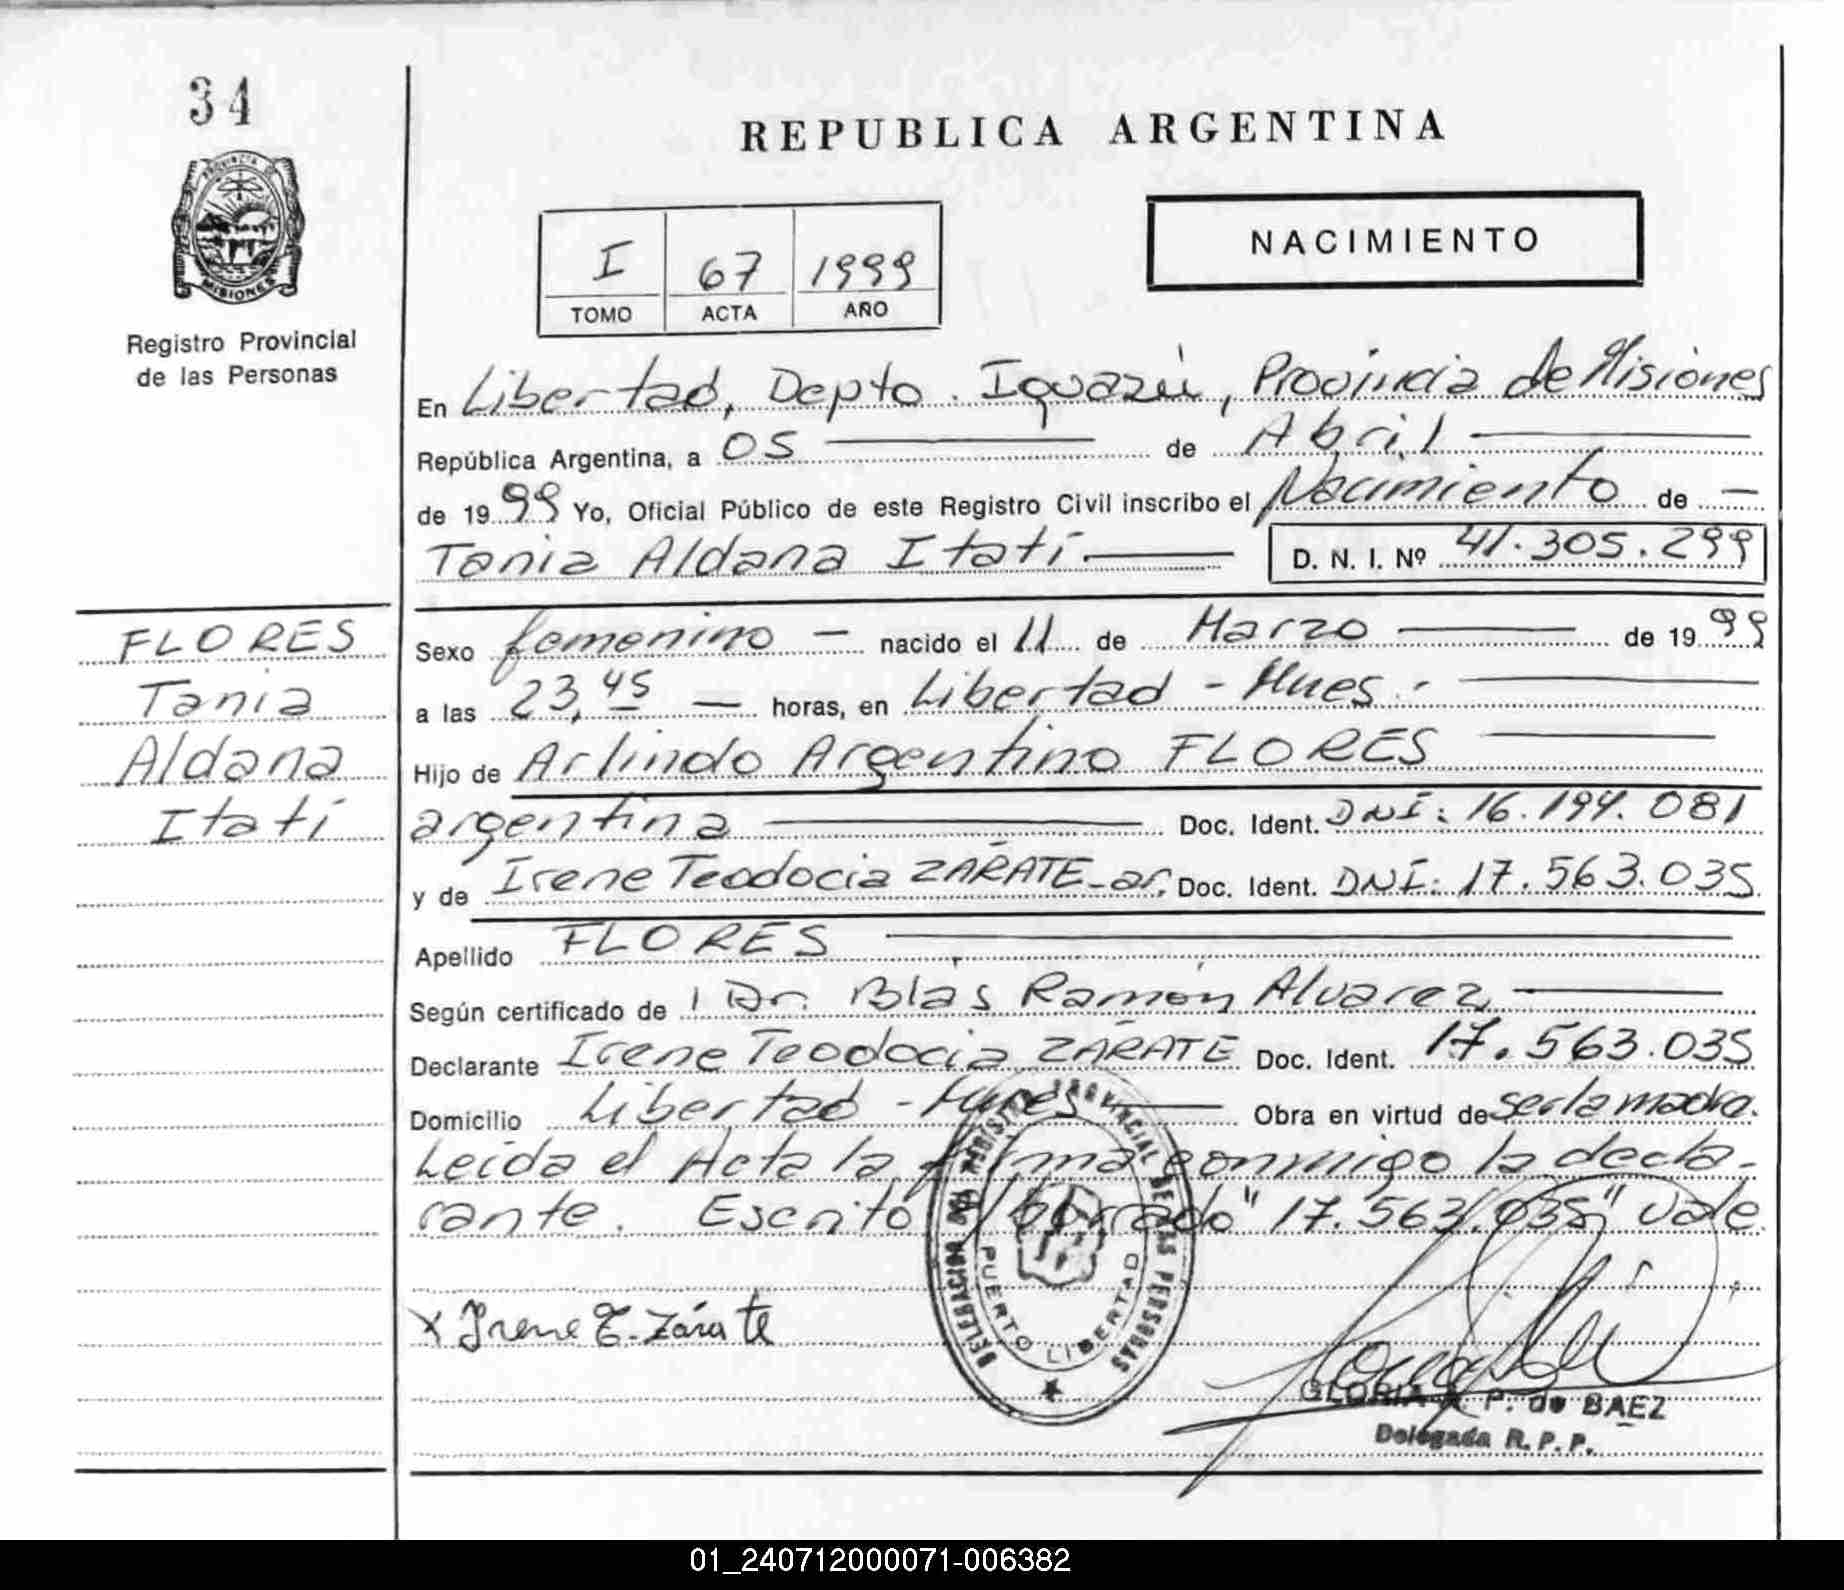 34
PROVINCIA DE
MISIONES
Registro Provincial
de las Personas
REPUBLICA ARGENTINA
NACIMIENTO
I 67 1999
TOMO ACTA AÑO
En Libertad, Depto. Iguazú, Provincia de Misiones
República Argentina, a 05 de Abril
de 1999 Yo, Oficial Público de este Registro Civil inscribo el Nacimiento de —
Tania Aldana Itatí D. N. I. Nº 41.305.299
FLORES
Tania
Aldana
Itatí
Sexo femenino — nacido el 11 de Marzo de 1999
a las 23,45 — horas, en Libertad - Mnes.-
Hijo de Arlindo Argentino FLORES
argentina Doc. Ident. DNI: 16.194.081
y de Irene Teodocia ZÁRATE - ar. Doc. Ident. DNI: 17.563.035
Apellido FLORES
Según certificado de Dr. Blás Ramón Alvarez
Declarante Irene Teodocia ZÁRATE Doc. Ident. 17.563.035
Domicilio Libertad - Mnes Obra en virtud de ser la madre.
Leída el Acta la firma conmigo la decla-
rante. Escrito s/borrado "17.563.035" Vale
X Irene T. Zárate
DELEGACION DEL REGISTRO PROVINCIAL DE LAS PERSONAS
PUERTO LIBERTAD
GLORIA P. de BAEZ
Delegada R. P. P.
01_240712000071-006382